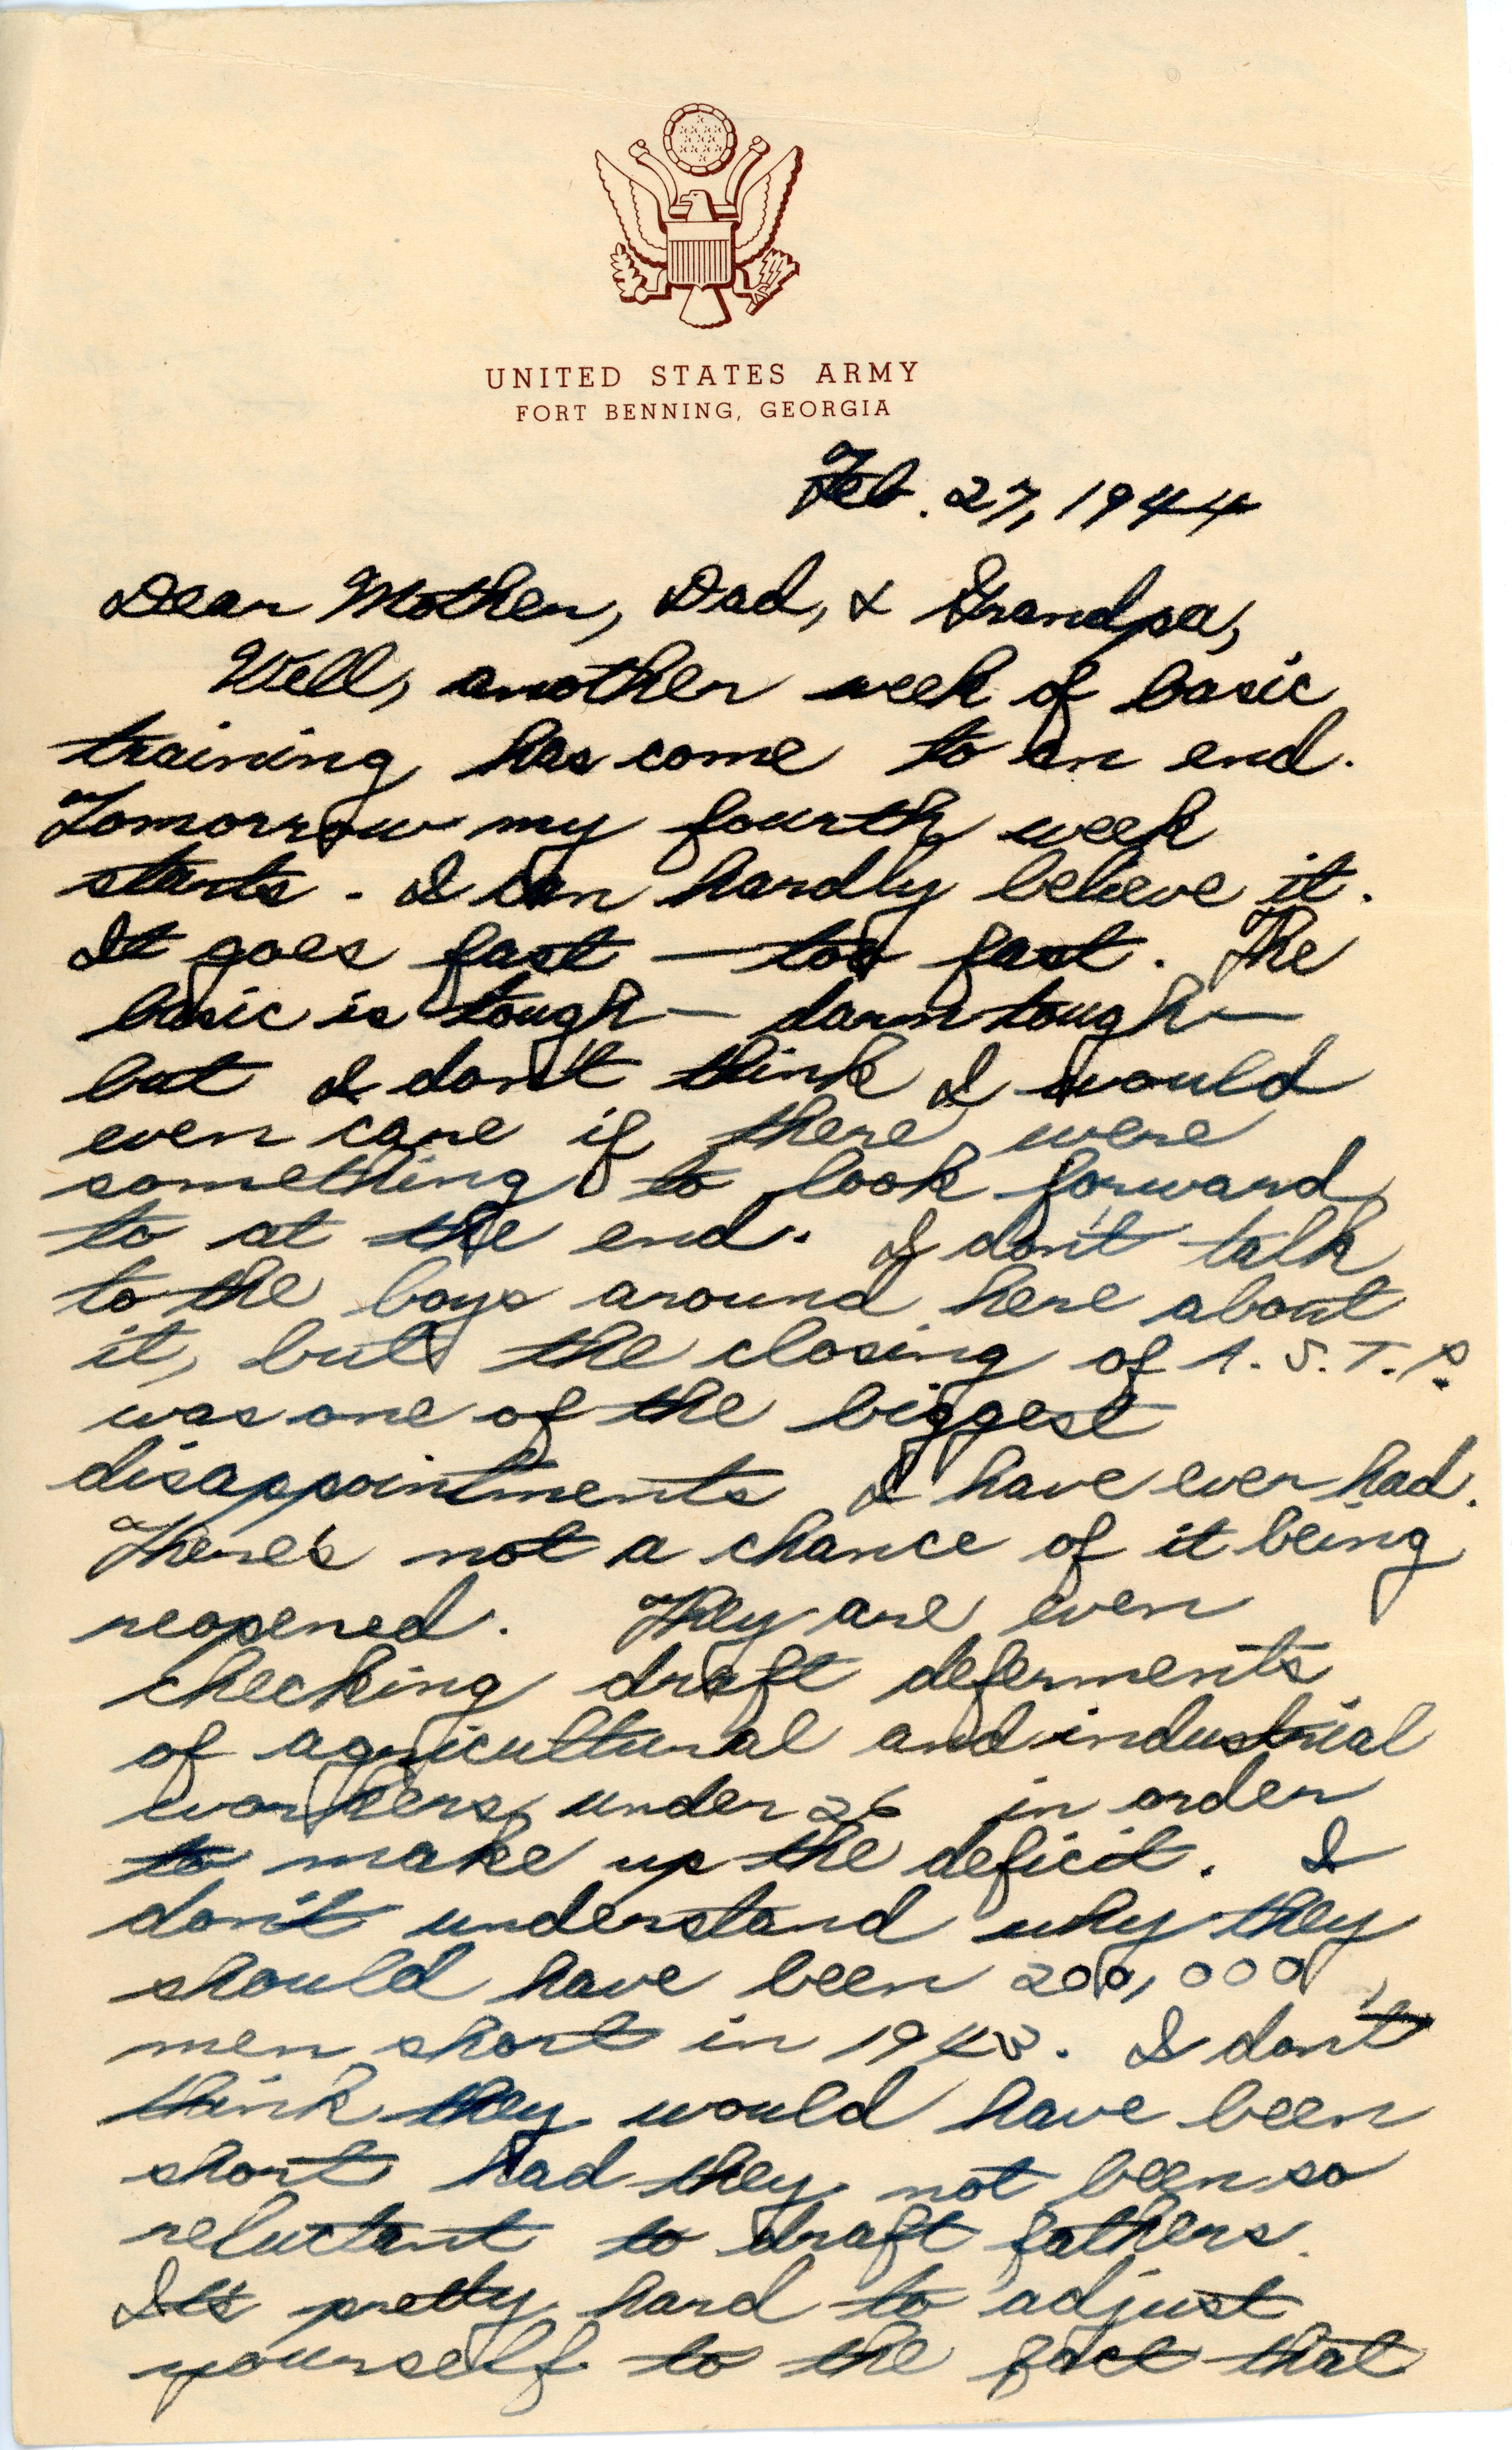 UNITED STATES ARMY
FORT BENNING, GEORGIA
Feb. 27, 1944
Dear Mother, Dad, & Grandpa,
Well, another week of basic
training has come to an end.
Tomorrow my fourth week
starts. I can hardly believe it.
It goes fast — too fast. The
basic is tough — darn tough —
but I don't think I would
even care if there were
something to look forward
to at the end. I don't talk
to the boys around here about
it, but the closing of A.S.T.P.
was one of the biggest
disappointments I have ever had.
There's not a chance of it being
reopened. They are even
checking draft deferments
of agricultural and industrial
workers under 26 in order
to make up the deficit. I
don't understand why they
should have been 200,000
men short in 1943. I don't
think they would have been
short had they not been so
reluctant to draft fathers.
It's pretty hard to adjust
yourself to the fact that